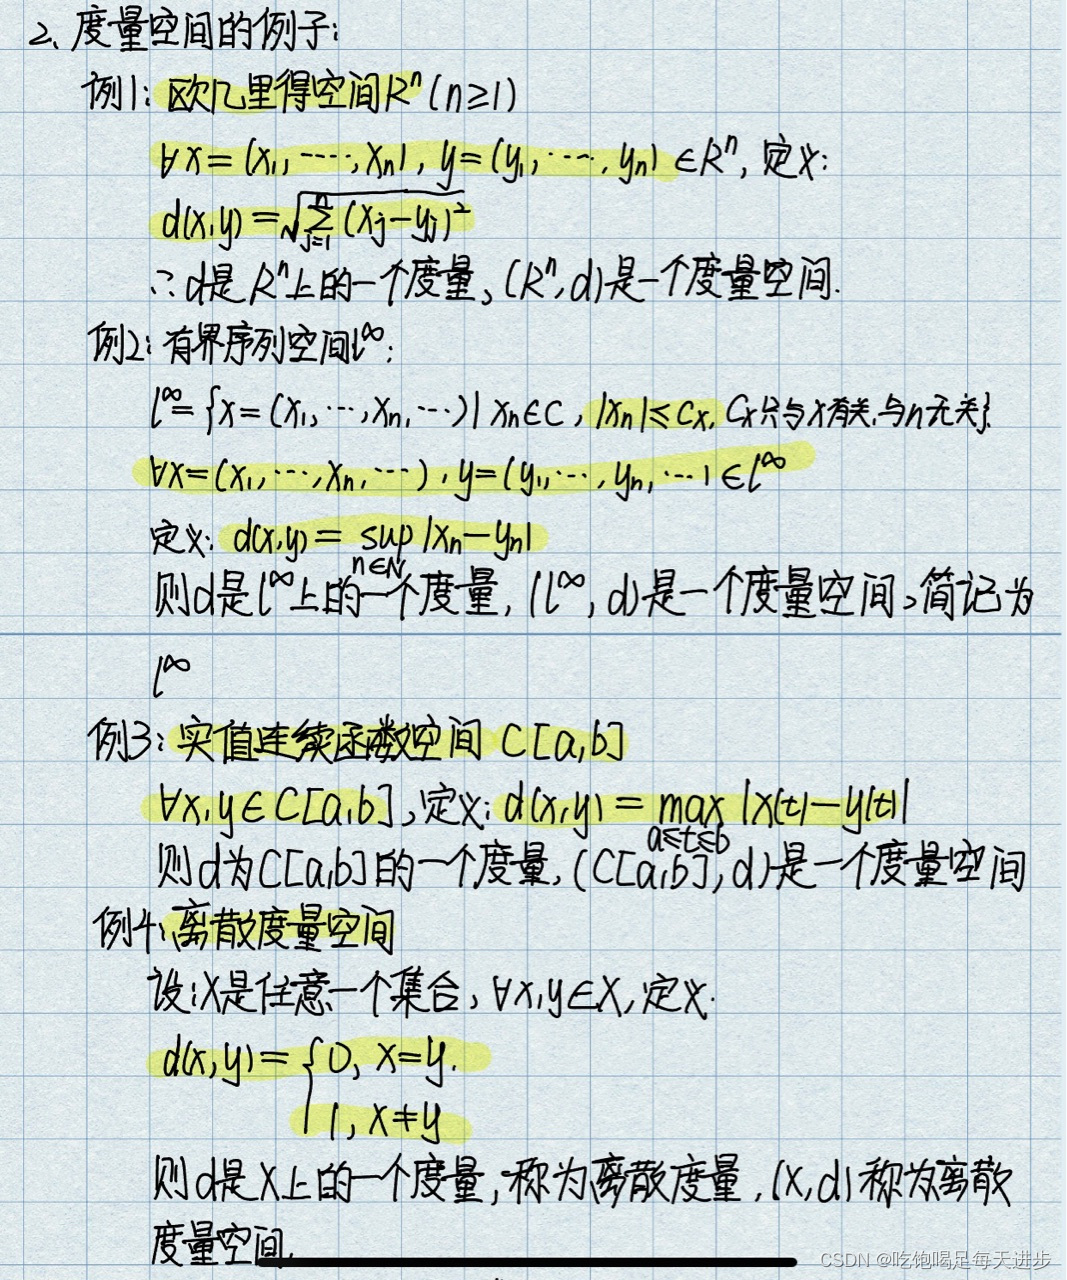 2、度量空间的例子:
例1: 欧几里得空间Rⁿ(n≥1)
∀x=(x₁,····,xₙ), y=(y₁,···,yₙ)∈Rⁿ, 定义:
d(x,y)=√(∑ⱼ₌₁ⁿ(xⱼ-yⱼ)²)
∴d是Rⁿ上的一个度量, (Rⁿ,d)是一个度量空间.
例2: 有界序列空间l^∞:
l^∞={x=(x₁,···,xₙ,···)|xₙ∈C, |xₙ|≤Cₓ, Cₓ只与x有关,与n无关}
∀x=(x₁,···,xₙ,···), y=(y₁,···,yₙ,···)∈l^∞
定义: d(x,y)= sup |xₙ-yₙ|
n∈N
则d是l^∞上的一个度量, (l^∞,d)是一个度量空间,简记为
l^∞
例3: 实值连续函数空间 C[a,b]
∀x,y∈C[a,b], 定义: d(x,y)= max |x(t)-y(t)|
a≤t≤b
则d为C[a,b]的一个度量, (C[a,b],d)是一个度量空间
例4: 离散度量空间
设:X是任意一个集合, ∀x,y∈X, 定义:
d(x,y)={0, x=y.
1, x≠y
则d是X上的一个度量, 称为离散度量, (X,d)称为离散
度量空间.
CSDN @吃饱喝足每天进步